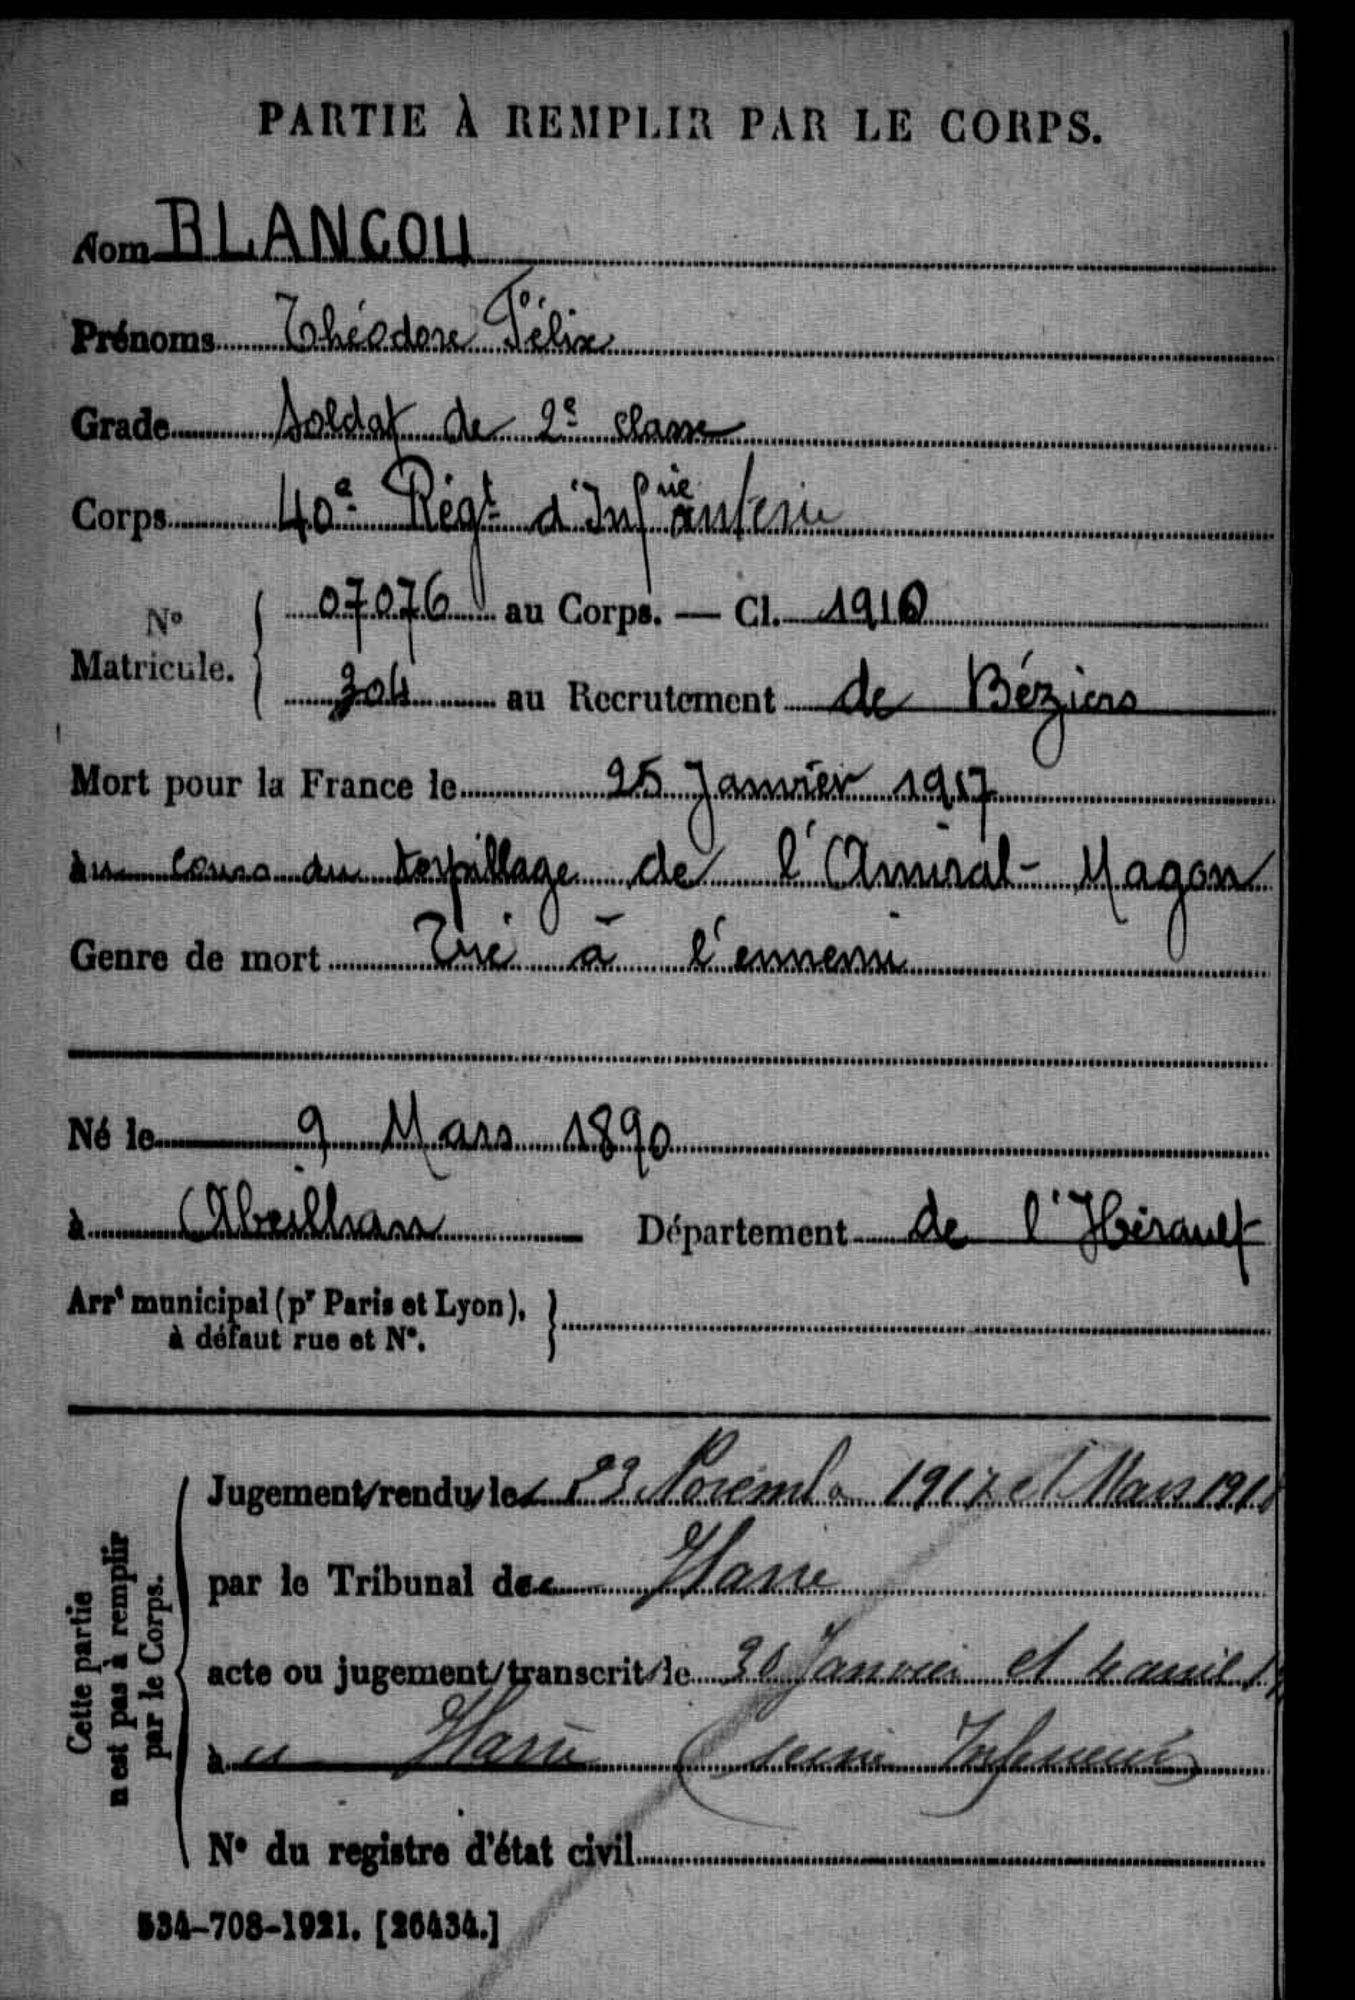 PARTIE À REMPLIR PAR LE CORPS.
Nom BLANCOU
Prénoms Théodore Félix
Grade Soldat de 2e classe
Corps 40e Régt d'Infanterie
No Matricule. 07076 au Corps. — Cl. 1910
304 au Recrutement de Béziers
Mort pour la France le 25 Janvier 1917
au cours du torpillage de l'Amiral-Magon
Genre de mort Tué à l'ennemi
Né le 9 Mars 1890
à Abeilhan Département de l'Hérault
Arrt municipal (pr Paris et Lyon),
à défaut rue et No.
Cette partie
n'est pas à remplir
par le Corps.
Jugement rendu le 23 Novembre 1917 et Mars 191
par le Tribunal de Havre
acte ou jugement transcrit le 30 Janvier et avril
à Havre (Seine Inférieure)
No du registre d'état civil
534-708-1921. [26434.]